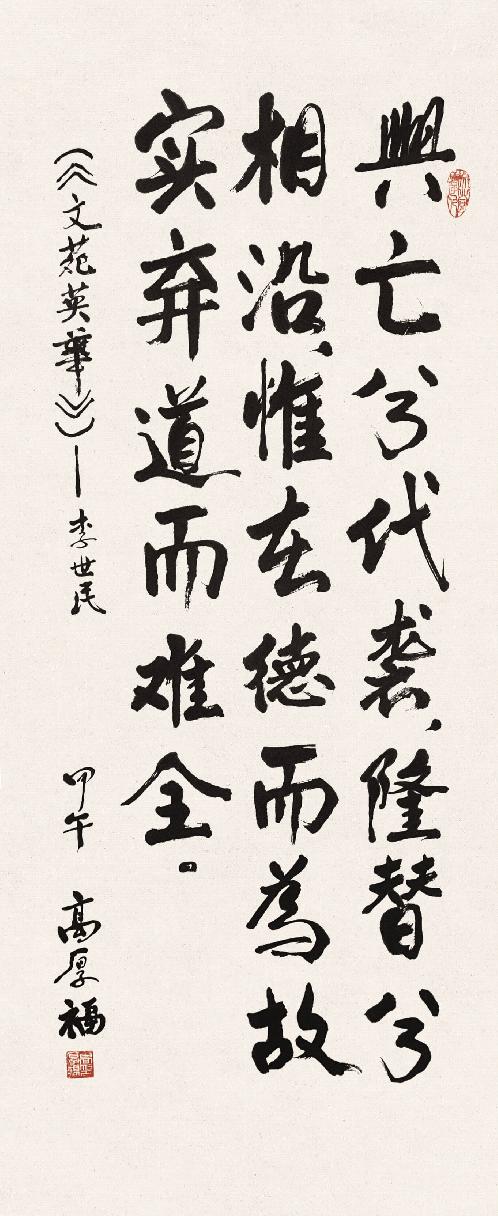 興亡兮代袭，隆替兮
相沿，惟在德而為故
实弃道而难全。
《文苑英華》—李世民 甲午 高厚福